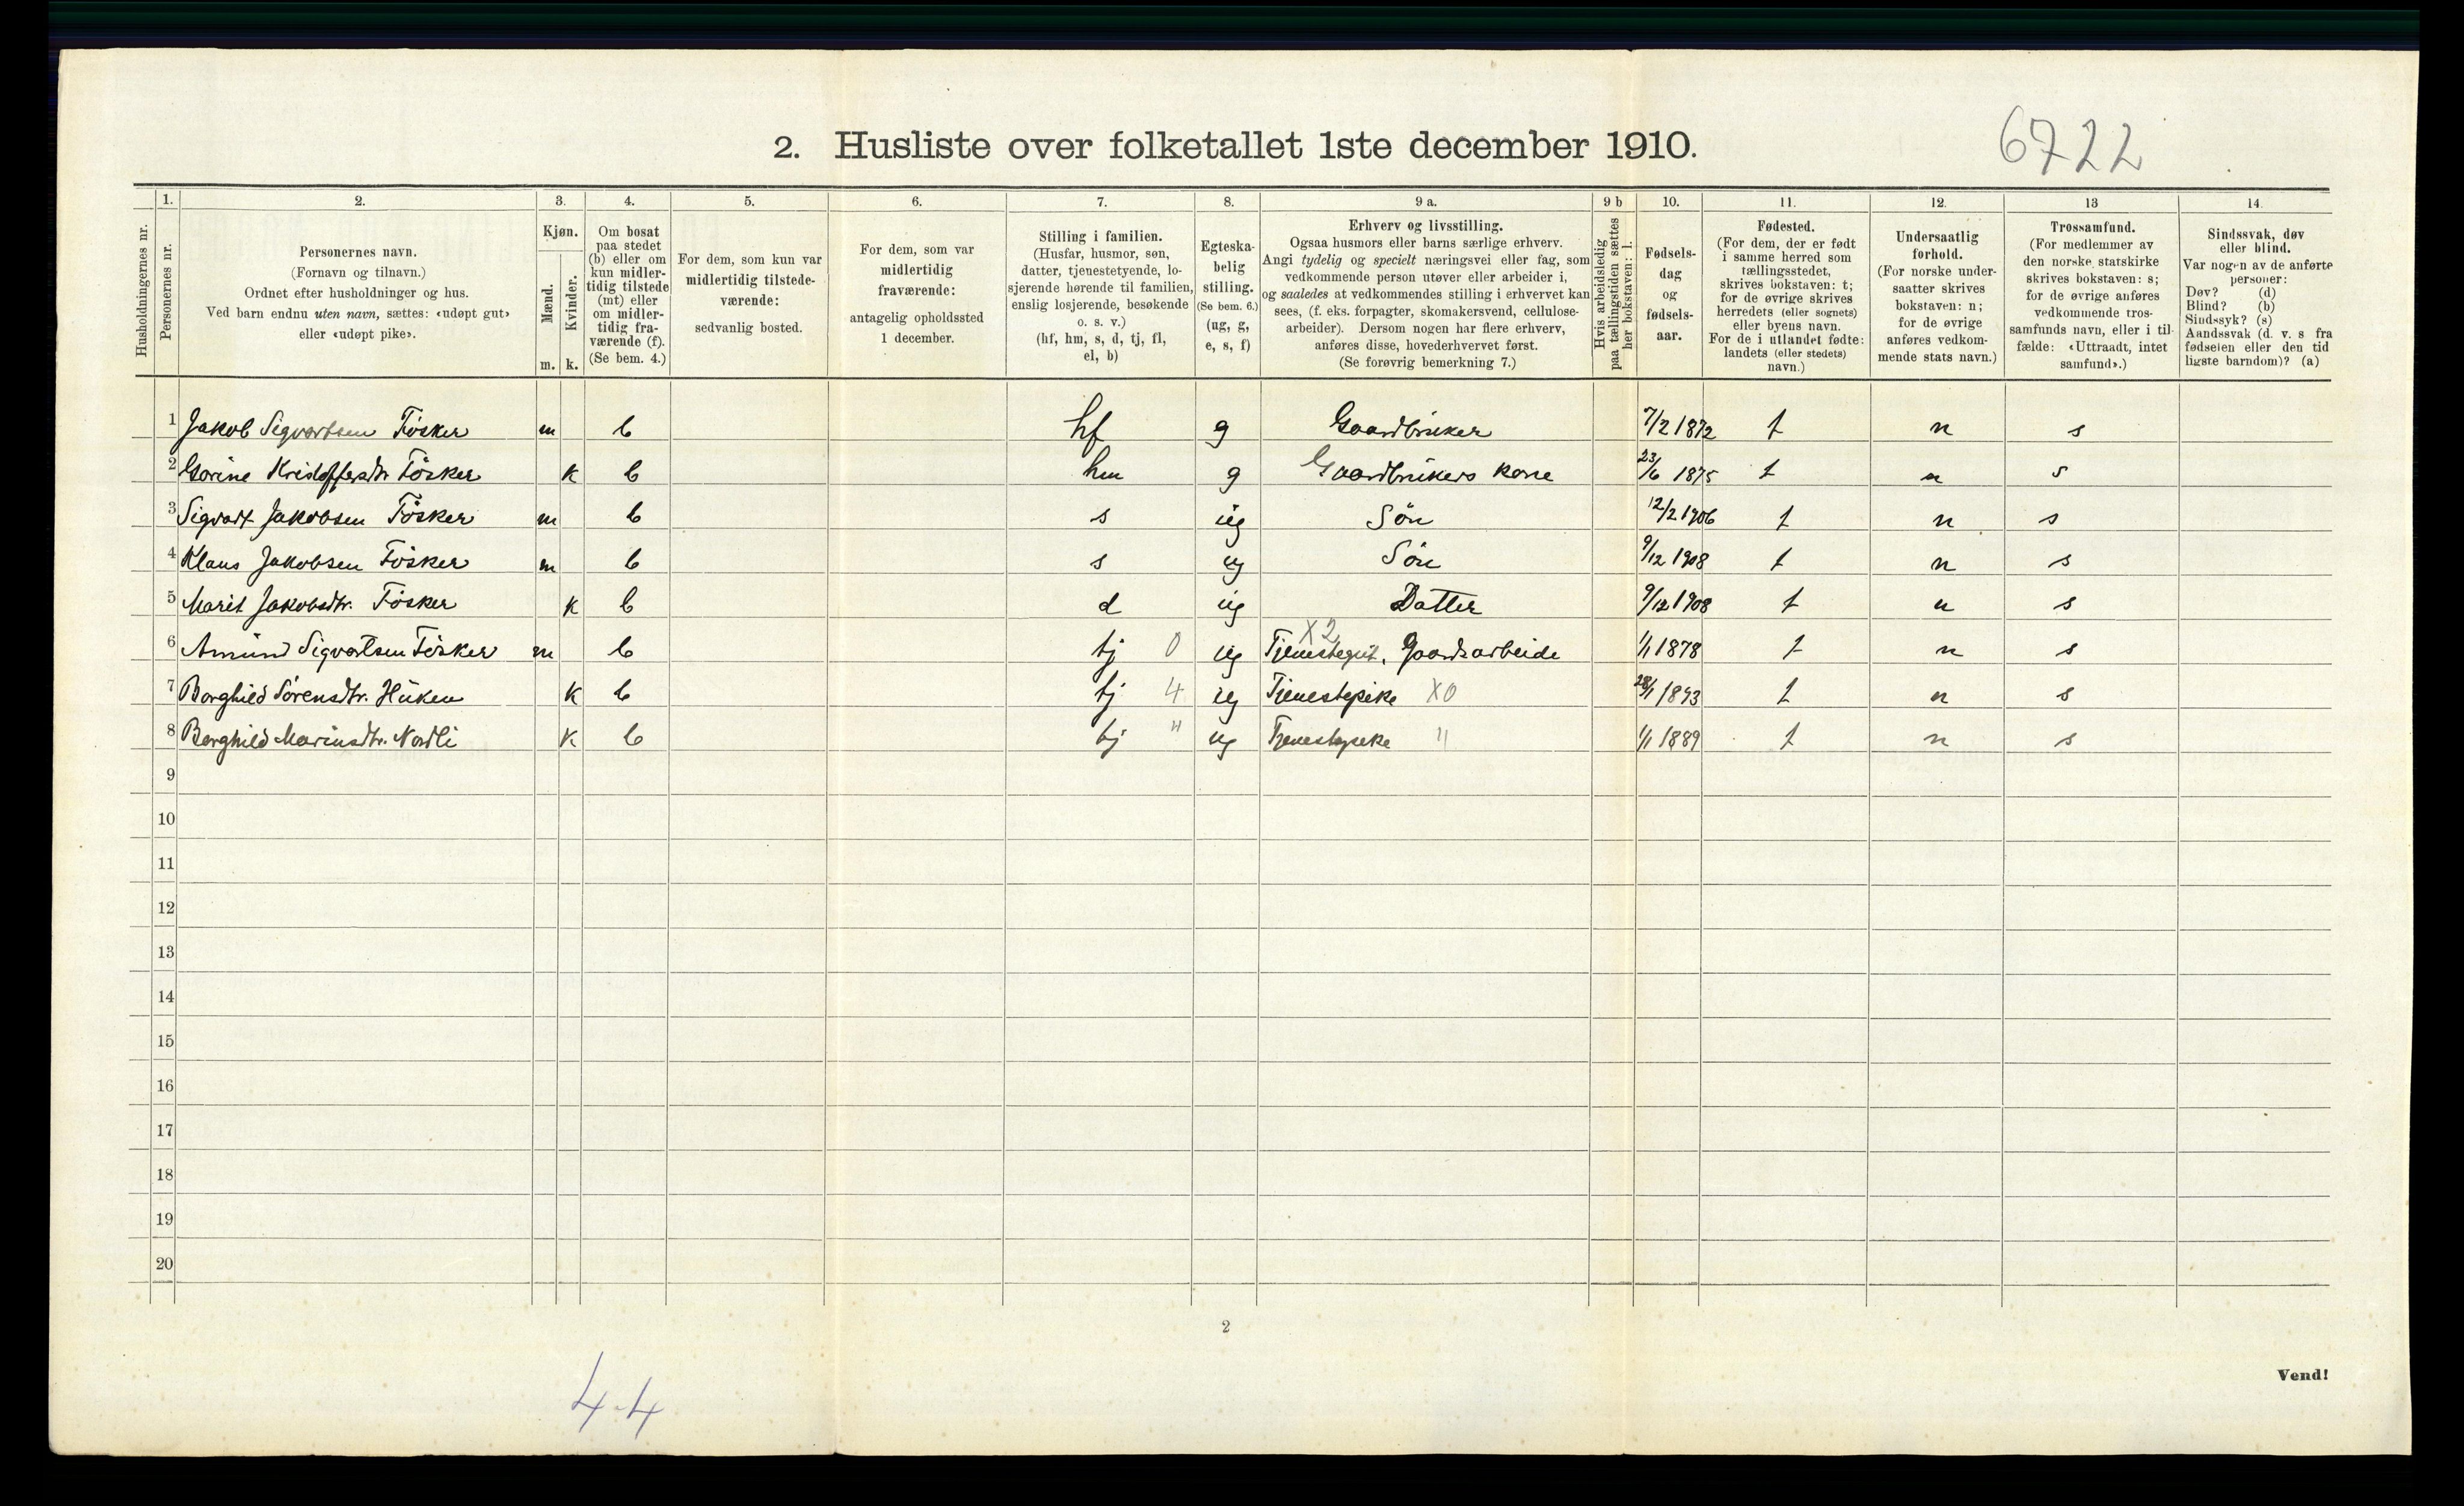 2. Husliste over folketallet 1ste december 1910.
6722
1. 2. 3. 4. 5. 6. 7. 8. 9 a. 9 b 10. 11. 12. 13 14.
Husholdningernes nr.
Personernes nr.
Personernes navn.
(Fornavn og tilnavn.)
Ordnet efter husholdninger og hus.
Ved barn endnu uten navn, sættes: «udøpt gut»
eller «udøpt pike».
Kjøn.
Mænd.
Kvinder.
m. k.
Om bosat
paa stedet
(b) eller om
kun midler-
tidig tilstede
(mt) eller
om midler-
tidig fra-
værende (f).
(Se bem. 4.)
For dem, som kun var
midlertidig tilstede-
værende:
sedvanlig bosted.
For dem, som var
midlertidig
fraværende:
antagelig opholdssted
1 december.
Stilling i familien.
(Husfar, husmor, søn,
datter, tjenestetyende, lo-
sjerende hørende til familien,
enslig losjerende, besøkende
o. s. v.)
(hf, hm, s, d, tj, fl,
el, b)
Egteska-
belig
stilling.
(Se bem. 6.)
(ug, g,
e, s, f)
Erhverv og livsstilling.
Ogsaa husmors eller barns særlige erhverv.
Angi tydelig og specielt næringsvei eller fag, som
vedkommende person utøver eller arbeider i,
og saaledes at vedkommendes stilling i erhvervet kan
sees, (f. eks. forpagter, skomakersvend, cellulose-
arbeider). Dersom nogen har flere erhverv,
anføres disse, hovederhvervet først.
(Se forøvrig bemerkning 7.)
Hvis arbeidsledig
paa tællingstiden sættes
her bokstaven: l.
Fødsels-
dag
og
fødsels-
aar.
Fødested.
(For dem, der er født
i samme herred som
tællingsstedet,
skrives bokstaven: t;
for de øvrige skrives
herredets (eller sognets)
eller byens navn.
For de i utlandet fødte:
landets (eller stedets)
navn.)
Undersaatlig
forhold.
(For norske under-
saatter skrives
bokstaven: n;
for de øvrige
anføres vedkom-
mende stats navn.)
Trossamfund.
(For medlemmer av
den norske statskirke
skrives bokstaven: s;
for de øvrige anføres
vedkommende tros-
samfunds navn, eller i til-
fælde: «Uttraadt, intet
samfund».)
Sindssvak, døv
eller blind.
Var nogen av de anførte
personer:
Døv? (d)
Blind? (b)
Sindssyk? (s)
Aandssvak (d. v. s fra
fødselen eller den tid
ligste barndom)? (a)
1 Jakob Sigvartsen Tösker m b hf g Gaardbruker 7/2 1872 t n s
2 Gorine Kristoffersdtr Tösker k b hm g Gaardbrukers kone 23/6 1875 t n s
3 Sigvart Jakobsen Tösker m b s ug Sön 12/2 1906 t n s
4 Klaus Jakobsen Tösker m b s ug Sön 9/12 1908 t n s
5 Marit Jakobsdtr. Tösker k b d ug Datter 9/12 1908 t n s
6 Amund Sigvartsen Tösker m b tj 0 ug Tjenestegut, Gaardsarbeide X2 1/1 1878 t n s
7 Borghild Sörensdtr. Huken k b tj 4 ug Tjenestepike X0 28/1 1893 t n s
8 Borghild Mariusdtr. Nordli k b tj " ug Tjenestepike " 1/1 1889 t n s
9
10
11
12
13
14
15
16
17
18
19
20
2
Vend!
4-4